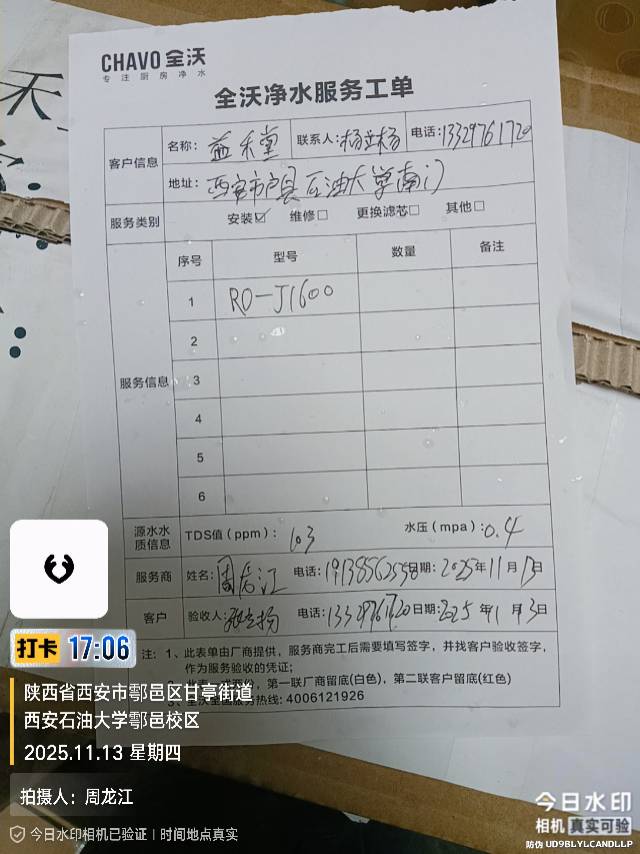 CHAVO 全沃
专注厨房净水
全沃净水服务工单
客户信息
名称: 益禾堂 联系人: 杨立杨 电话: 13329761720
地址: 西安市户县石油大学(南门)
服务类别 安装☑ 维修□ 更换滤芯□ 其他□
服务信息
序号 型号 数量 备注
1 RO-J1600
2
3
4
5
6
源水水质信息 TDS值(ppm): 103 水压(mpa): 0.4
服务商 姓名: 周龙江 电话: 19138562558 日期: 2025年11月13日
客户 验收人: 电话: 13329761720 日期: 2025年11月13日
注: 1、此表单由厂商提供,服务商完工后需要填写签字,并找客户验收签字,
作为服务验收的凭证;
2、此表一式两份,第一联厂商留底(白色),第二联客户留底(红色)
3、全沃全国服务热线: 4006121926
打卡 17:06
陕西省西安市鄠邑区甘亭街道
西安石油大学鄠邑校区
2025.11.13 星期四
拍摄人: 周龙江
今日水印相机已验证 | 时间地点真实
今日水印
相机 真实可验
防伪 UD9BLYLCANDLLP